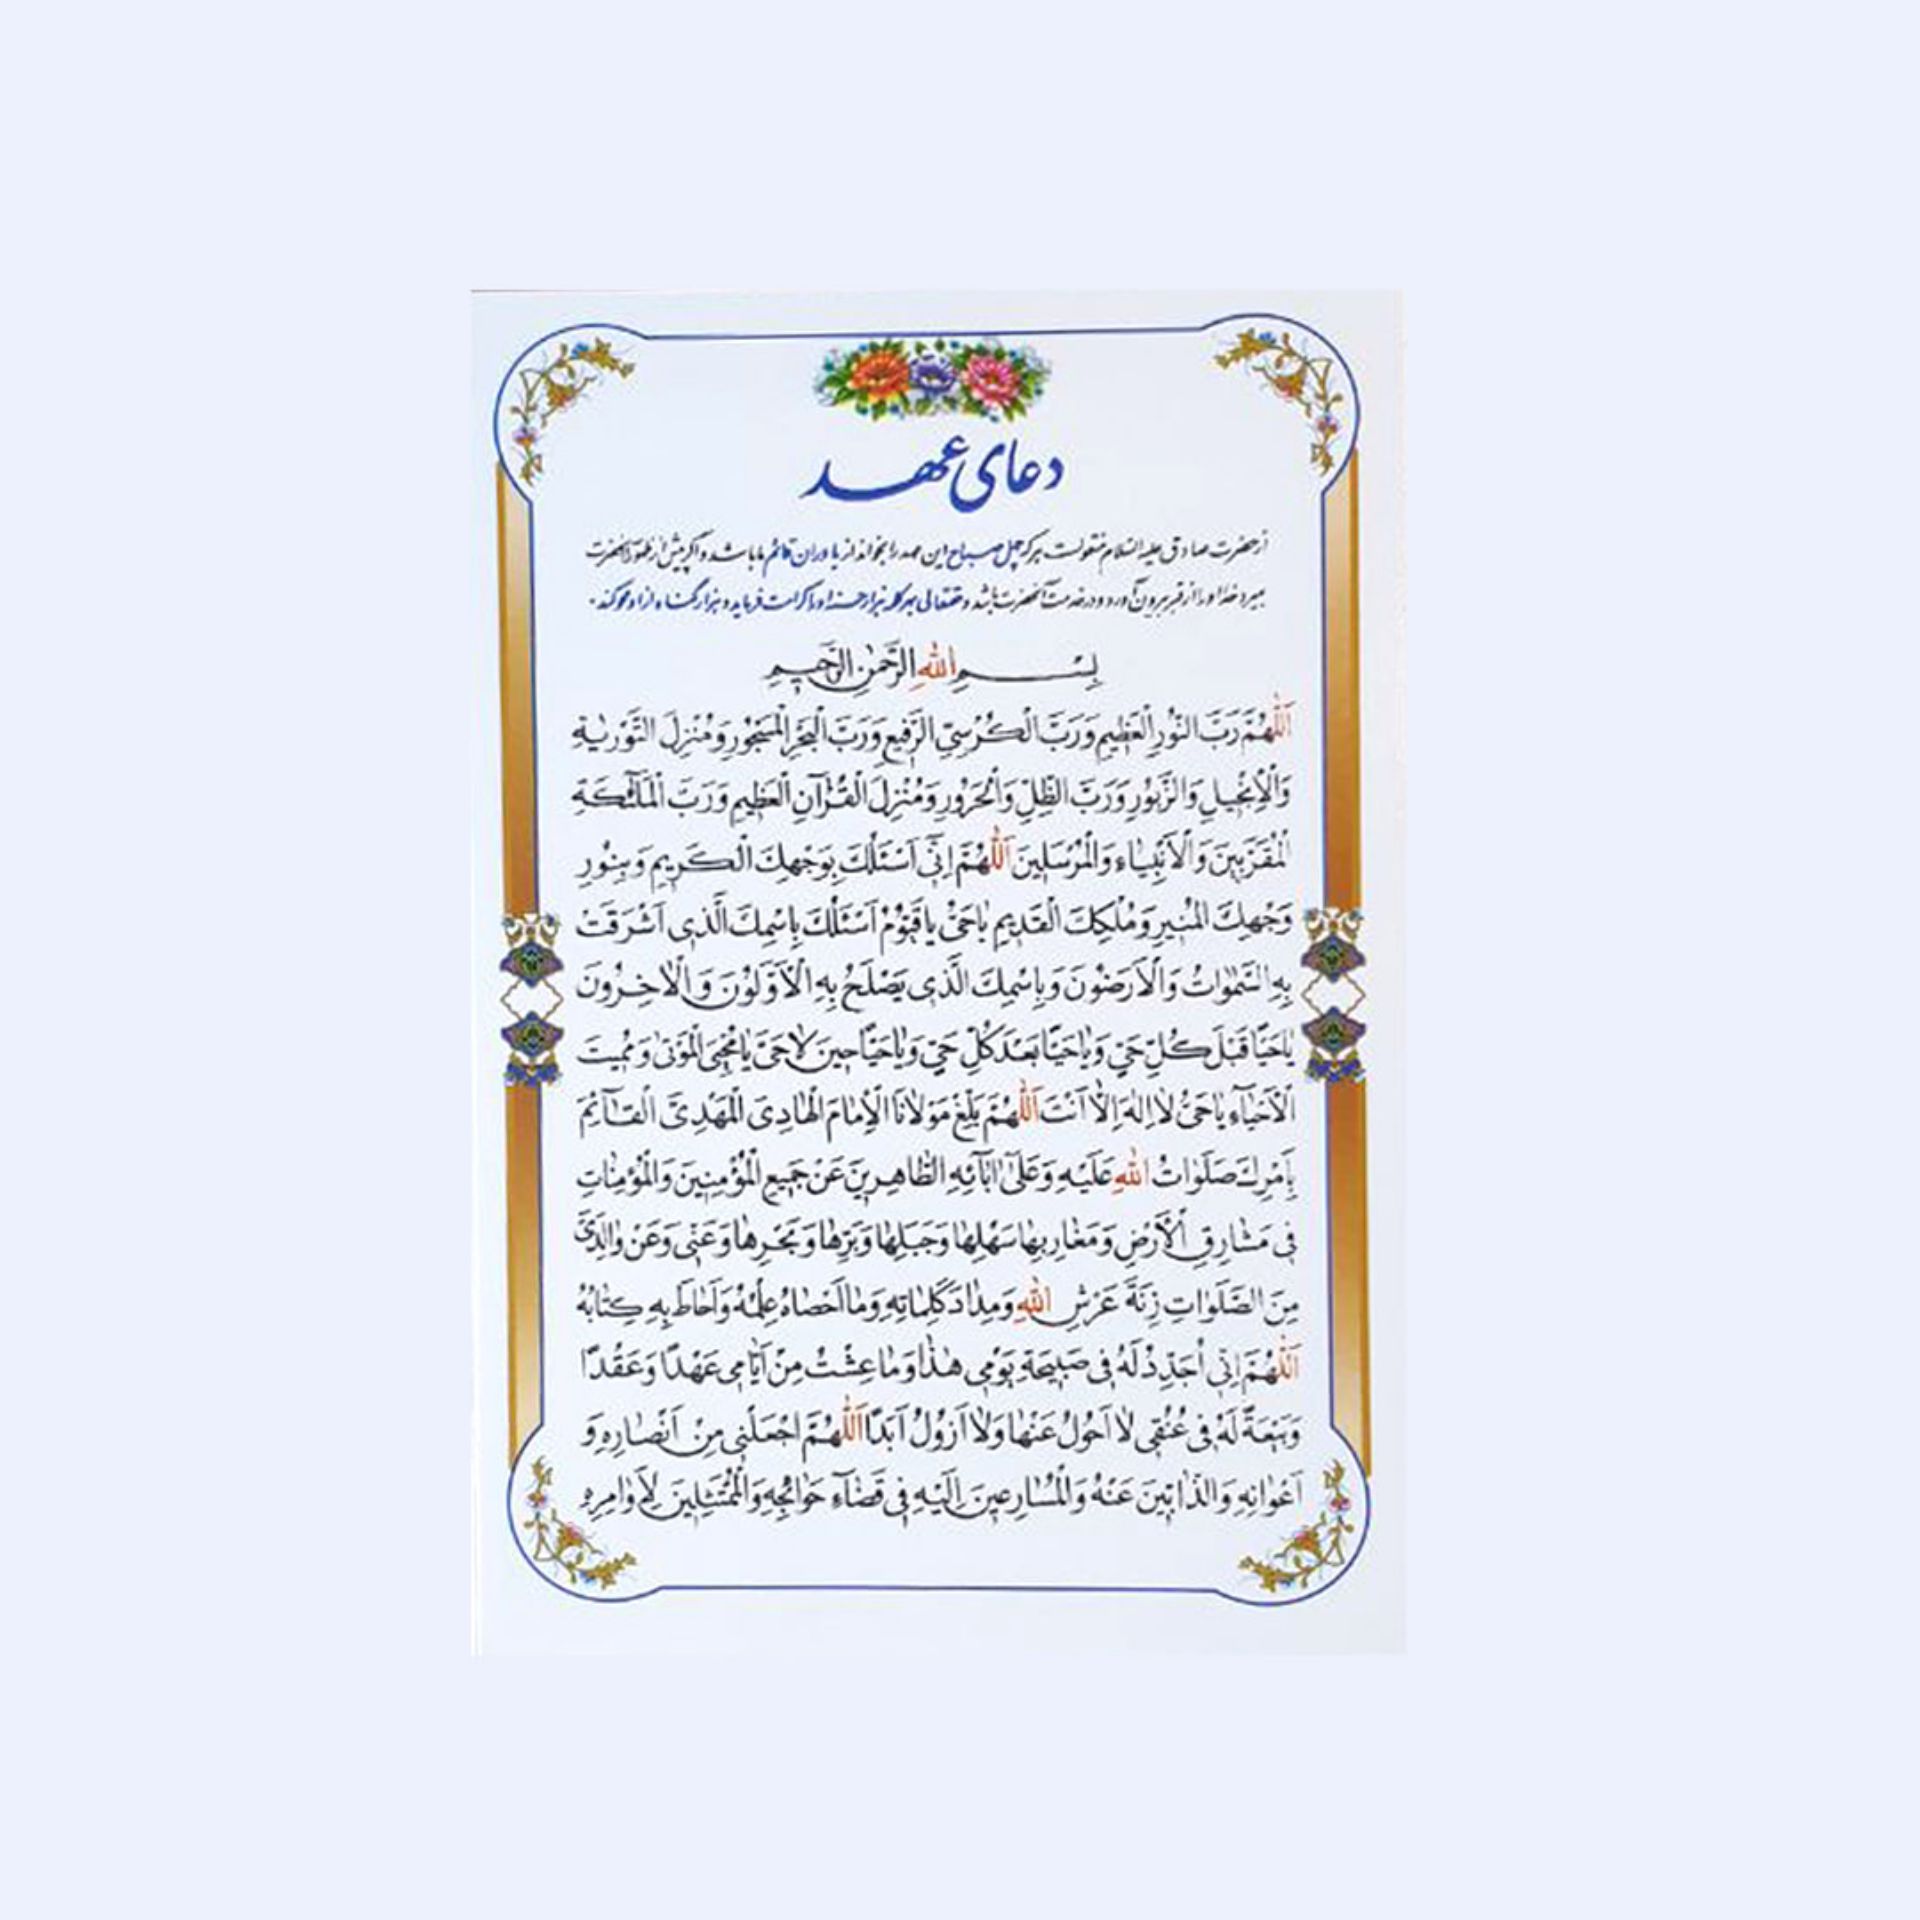 دعای عهد
از حضرت صادق علیه السلام منقولست هر که چهل صباح این عهد را بخواند از یاوران قائم ما باشد و اگر پیش از ظهور آنحضرت
بمیرد خدا او را از قبر بیرون آورد و در خدمت آنحضرت باشد و حقتعالی بهر کلمه هزار حسنه او را کرامت فرماید و هزار گناه از او محو کند.
بِسْمِ اللهِ الرَّحْمٰنِ الرَّحیمِ
اَللّٰهُمَّ رَبَّ النُّورِ الْعَظیمِ وَرَبَّ الْكُرْسِیِّ الرَّفیعِ وَرَبَّ الْبَحْرِ الْمَسْجُورِ وَمُنْزِلَ التَّوْرٰیةِ
وَالْاِنْجیلِ وَالزَّبُورِ وَرَبَّ الظِّلِّ وَالْحَرُورِ وَمُنْزِلَ الْقُرْآنِ الْعَظیمِ وَرَبَّ الْمَلٰٓئِكَةِ
الْمُقَرَّبینَ وَالْاَنْبِیٰاءِ وَالْمُرْسَلینَ اَللّٰهُمَّ اِنّی اَسْئَلُكَ بِوَجْهِكَ الْكَریمِ وَبِنُورِ
وَجْهِكَ الْمُنیرِ وَمُلْكِكَ الْقَدیمِ یٰاحَیُّ یٰاقَیُّومُ اَسْئَلُكَ بِاسْمِكَ الَّذی اَشْرَقَتْ
بِهِ السَّمٰوٰاتُ وَالْاَرَضُونَ وَبِاسْمِكَ الَّذی یَصْلَحُ بِهِ الْاَوَّلُونَ وَالْاٰخِرُونَ
یٰاحَیًّا قَبْلَ كُلِّ حَیٍّ وَیٰاحَیًّا بَعْدَ كُلِّ حَیٍّ وَیٰاحَیًّا حینَ لاٰحَیَّ یٰامُحْیِیَ الْمَوْتىٰ وَمُمیتَ
الْاَحْیٰآءِ یٰاحَیُّ لاٰاِلٰهَ اِلاّٰ اَنْتَ اَللّٰهُمَّ بَلِّغْ مَوْلاٰنَا الْاِمٰامَ الْهٰادِیَ الْمَهْدِیَّ الْقٰآئِمَ
بِاَمْرِكَ صَلَوٰاتُ اللهِ عَلَیْهِ وَعَلىٰ اٰبٰآئِهِ الطّٰاهِرینَ عَنْ جَمیعِ الْمُؤْمِنینَ وَالْمُؤْمِنٰاتِ
فی مَشٰارِقِ الْاَرْضِ وَمَغٰارِبِهٰا سَهْلِهٰا وَجَبَلِهٰا وَبَرِّهٰا وَبَحْرِهٰا وَعَنّی وَعَنْ وٰالِدَیَّ
مِنَ الصَّلَوٰاتِ زِنَةَ عَرْشِ اللهِ وَمِدٰادَ كَلِمٰاتِهِ وَمٰا اَحْصٰاهُ عِلْمُهُ وَاَحٰاطَ بِهِ كِتٰابُهُ
اَللّٰهُمَّ اِنّی اُجَدِّدُ لَهُ فی صَبیحَةِ یَوْمی هٰذٰا وَمٰا عِشْتُ مِنْ اَیّٰامی عَهْدًا وَعَقْدًا
وَبَیْعَةً لَهُ فی عُنُقی لاٰ اَحُولُ عَنْهٰا وَلاٰ اَزُولُ اَبَدًا اَللّٰهُمَّ اجْعَلْنی مِنْ اَنْصٰارِهِ وَ
اَعْوٰانِهِ وَالذّٰابّینَ عَنْهُ وَالْمُسٰارِعینَ اِلَیْهِ فی قَضٰآءِ حَوٰائِجِهِ وَالْمُمْتَثِلینَ لِاَوٰامِرِهِ